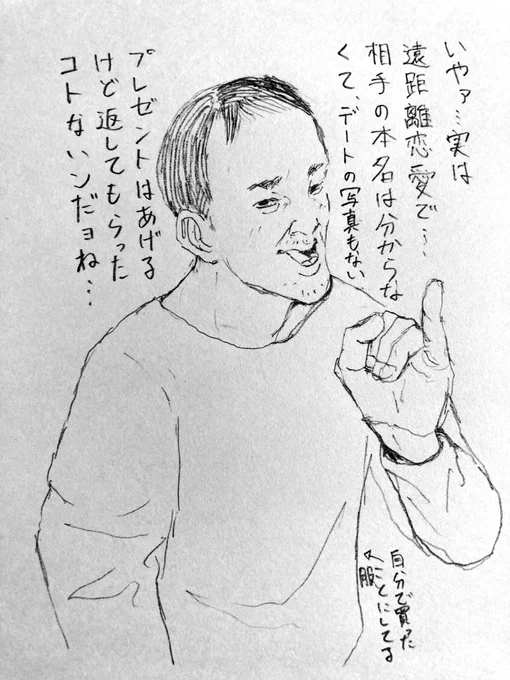 いやァ…実は
遠距離恋愛で…
相手の本名は分からな
くて、デートの写真もない
プレゼントはあげる
けど返してもらった
コトないンだョね…
自分で買った
ことにしてる
服